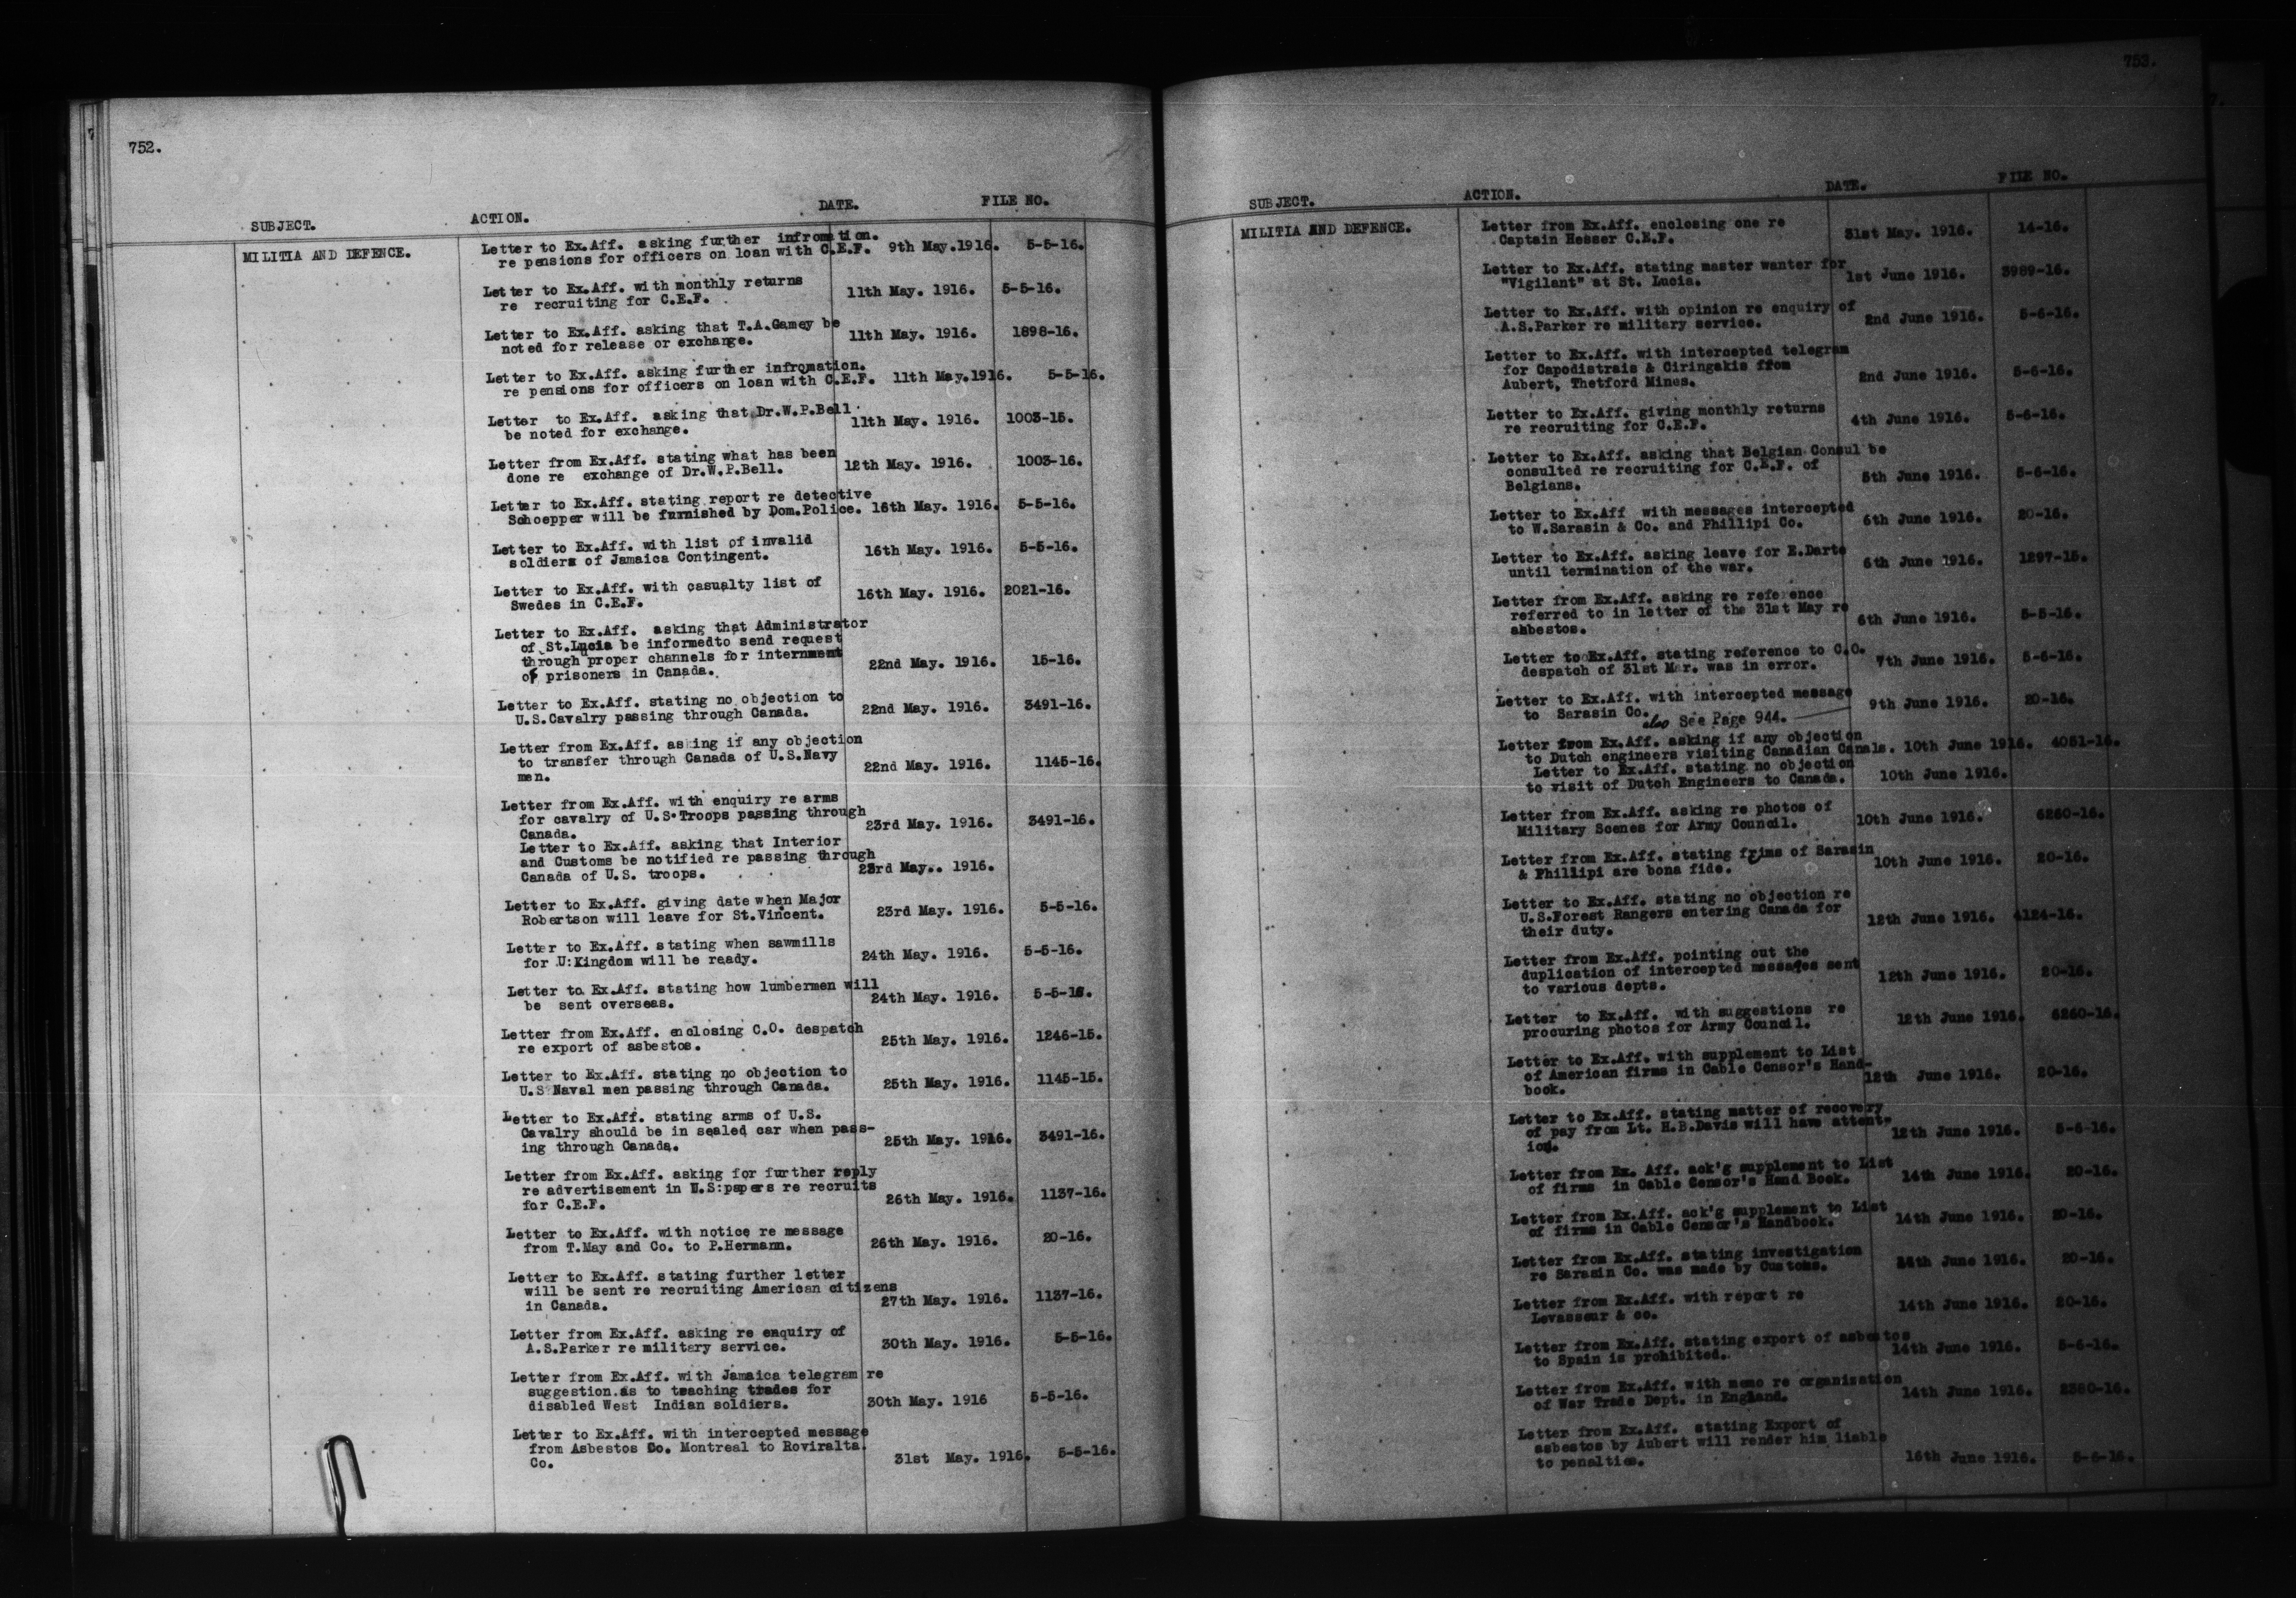 752.
SUBJECT. ACTION. DATE. FILE NO.
MILITIA AND DEFENCE.
Letter to Ex.Aff. asking further infromation.
re pensions for officers on loan with C.E.F. 9th May.1916. 5-5-16.
Letter to Ex.Aff. with monthly returns
re recruiting for C.E.F. 11th May. 1916. 5-5-16.
Letter to Ex.Aff. asking that T.A.Gamey be
noted for release or exchange. 11th May. 1916. 1898-16.
Letter to Ex.Aff. asking further infromation.
re pensions for officers on loan with C.E.F. 11th May.1916. 5-5-16.
Letter to Ex.Aff. asking that Dr.W.P.Bell
be noted for exchange. 11th May. 1916. 1003-15.
Letter from Ex.Aff. stating what has been
done re exchange of Dr.W.P.Bell. 12th May. 1916. 1003-16.
Letter to Ex.Aff. stating report re detective
Schoepper will be furnished by Dom.Police. 16th May. 1916. 5-5-16.
Letter to Ex.Aff. with list of invalid
soldiers of Jamaica Contingent. 16th May. 1916. 5-5-16.
Letter to Ex.Aff. with casualty list of
Swedes in C.E.F. 16th May. 1916. 2021-16.
Letter to Ex.Aff. asking that Administrator
of St.Lucia be informedto send request
through proper channels for internment
of prisoners in Canada. 22nd May. 1916. 15-16.
Letter to Ex.Aff. stating no objection to
U.S.Cavalry passing through Canada. 22nd May. 1916. 3491-16.
Letter from Ex.Aff. asking if any objection
to transfer through Canada of U.S.Navy
men. 22nd May. 1916. 1145-16.
Letter from Ex.Aff. with enquiry re arms
for cavalry of U.S.Troops passing through
Canada. 23rd May. 1916. 3491-16.
Letter to Ex.Aff. asking that Interior
and Customs be notified re passing through
Canada of U.S. troops. 23rd May.. 1916.
Letter to Ex.Aff. giving date when Major
Robertson will leave for St.Vincent. 23rd May. 1916. 5-5-16.
Letter to Ex.Aff. stating when sawmills
for U:Kingdom will be ready. 24th May. 1916. 5-5-16.
Letter to Ex.Aff. stating how lumbermen will
be sent overseas. 24th May. 1916. 5-5-16.
Letter from Ex.Aff. enclosing C.O. despatch
re export of asbestos. 25th May. 1916. 1246-15.
Letter to Ex.Aff. stating no objection to
U.S Naval men passing through Canada. 25th May. 1916. 1145-15.
Letter to Ex.Aff. stating arms of U.S.
Cavalry should be in sealed car when pass-
ing through Canada. 25th May. 1916. 3491-16.
Letter from Ex.Aff. asking for further reply
re advertisement in U.S:papers re recruits
for C.E.F. 26th May. 1916. 1137-16.
Letter to Ex.Aff. with notice re message
from T.May and Co. to P.Hermann. 26th May. 1916. 20-16.
Letter to Ex.Aff. stating further letter
will be sent re recruiting American citizens
in Canada. 27th May. 1916. 1137-16.
Letter from Ex.Aff. asking re enquiry of
A.S.Parker re military service. 30th May. 1916. 5-5-16.
Letter from Ex.Aff. with Jamaica telegram re
suggestion.as to teaching trades for
disabled West Indian soldiers. 30th May. 1916 5-5-16.
Letter to Ex.Aff. with intercepted message
from Asbestos Co. Montreal to Roviralta
Co. 31st May. 1916. 5-5-16.
753.
SUBJECT. ACTION. DATE. FILE NO.
MILITIA AND DEFENCE.
Letter from Ex.Aff. enclosing one re
Captain Hesser C.E.F. 31st May. 1916. 14-16.
Letter to Ex.Aff. stating master wanter for
"Vigilant" at St. Lucia. 1st June 1916. 3989-16.
Letter to Ex.Aff. with opinion re enquiry of
A.S.Parker re military service. 2nd June 1916. 5-6-16.
Letter to Ex.Aff. with intercepted telegram
for Capodistrais & Ciringakis from
Aubert, Thetford Mines. 2nd June 1916. 5-6-16.
Letter to Ex.Aff. giving monthly returns
re recruiting for C.E.F. 4th June 1916. 5-6-16.
Letter to Ex.Aff. asking that Belgian Consul be
consulted re recruiting for C.E.F. of
Belgians. 5th June 1916. 5-6-16.
Letter to Ex.Aff with messages intercepted
to W.Sarasin & Co. and Phillipi Co. 6th June 1916. 20-16.
Letter to Ex.Aff. asking leave for E.Darte
until termination of the war. 6th June 1916. 1297-15.
Letter from Ex.Aff. asking re reference
referred to in letter of the 31st May re
asbestos. 6th June 1916. 5-5-16.
Letter to Ex.Aff. stating reference to C.O.
despatch of 31st Mar. was in error. 7th June 1916. 5-6-16.
Letter to Ex.Aff. with intercepted message
to Sarasin Co. 9th June 1916. 20-16.
also See Page 944.
Letter from Ex.Aff. asking if any objection
to Dutch engineers visiting Canadian Canals. 10th June 1916. 4051-16.
Letter to Ex.Aff. stating no objection
to visit of Dutch Engineers to Canada. 10th June 1916.
Letter from Ex.Aff. asking re photos of
Military Scenes for Army Council. 10th June 1916. 6260-16.
Letter from Ex.Aff. stating frims of Sarasin
& Phillipi are bona fide. 10th June 1916. 20-16.
Letter to Ex.Aff. stating no objection re
U.S.Forest Rangers entering Canada for
their duty. 12th June 1916. 4124-16.
Letter from Ex.Aff. pointing out the
duplication of intercepted messages sent
to various depts. 12th June 1916. 20-16.
Letter to Ex.Aff. with suggestions re
procuring photos for Army Council. 12th June 1916. 6260-16.
Letter to Ex.Aff. with supplement to List
of American firms in Cable Censor's Hand-
book. 12th June 1916. 20-16.
Letter to Ex.Aff. stating matter of recovery
of pay from Lt. H.B.Davis will have attent-
ion. 12th June 1916. 5-6-16.
Letter from Ex. Aff. ack'g supplement to List
of firms in Cable Censor's Hand Book. 14th June 1916. 20-16.
Letter from Ex.Aff. ack'g supplement to List
of firms in Cable Censor's Handbook. 14th June 1916. 20-16.
Letter from Ex.Aff. stating investigation
re Sarasin Co. was made by Customs. June 1916. 20-16.
Letter from Ex.Aff. with report re
Levasseur & co. 14th June 1916. 20-16.
Letter from Ex.Aff. stating export of asbestos
to Spain is prohibited. 14th June 1916. 5-6-16.
Letter from Ex.Aff. with memo re organization
of War Trade Dept. in England. 14th June 1916. 2380-16.
Letter from Ex.Aff. stating Export of
asbestos by Aubert will render him liable
to penalties. 16th June 1916. 5-6-16.